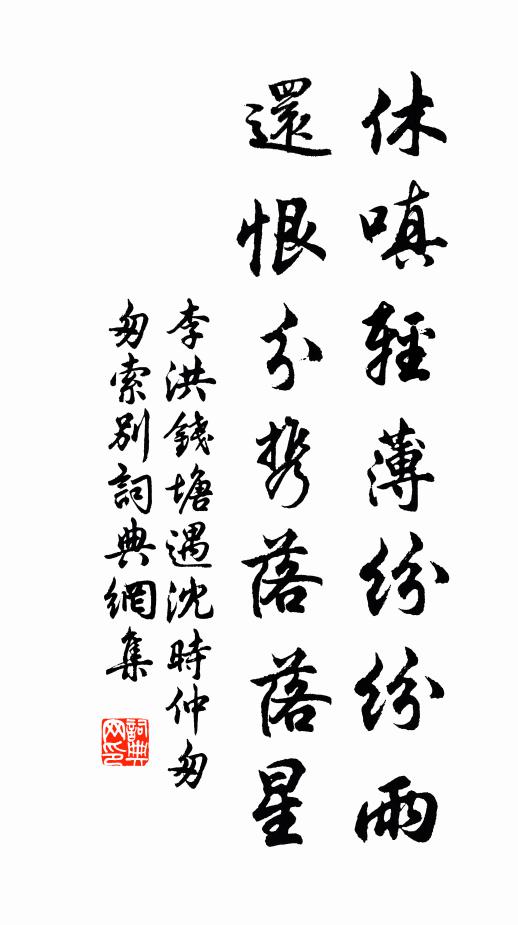 休嗔輕薄紛紛雨
還恨分携落落星
李洪錢塘遇沈時仲匆
匆索別詞典網集
詞典网印